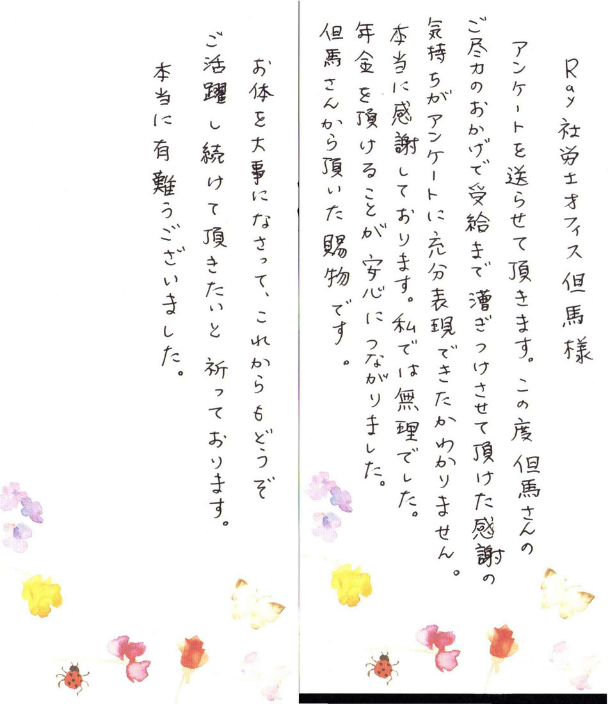 Ray社労士オフィス但馬様
アンケートを送らせて頂きます。この度但馬さんの
ご尽力のおかげで受給まで漕ぎつけさせて頂けた感謝の
気持ちがアンケートに充分表現できたかわかりません。
本当に感謝しております。私では無理でした。
年金を頂けることが安心につながりました。
但馬さんから頂いた賜物です。
お体を大事になさって、これからもどうぞ
ご活躍し続けて頂きたいと祈っております。
本当に有難うございました。